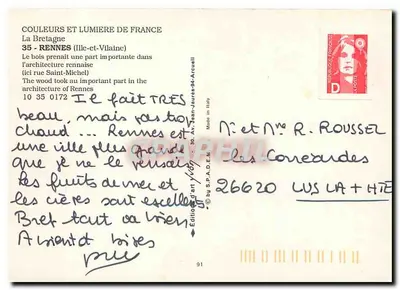 COULEURS ET LUMIERE DE FRANCE
La Bretagne
35 - RENNES (Ille-et-Vilaine)
Le bois prenait une part importante dans
l'architecture rennaise
(ici rue Saint-Michel)
The wood took an important part in the
architecture of Rennes
10 35 0172
Il fait TRES
beau, mais pas trop
chaud ... Rennes est
une ville plus grande
que je ne le pensais
les fruits de mer et
les cières sont excellents.
Bref tout va bien.
A bientôt bises
Editions d'art
© by S.P.A.D.E.M.
Made in Italy
D
Mr et Mme R. ROUSSEL
les
26620 LUS LA + HTE
91